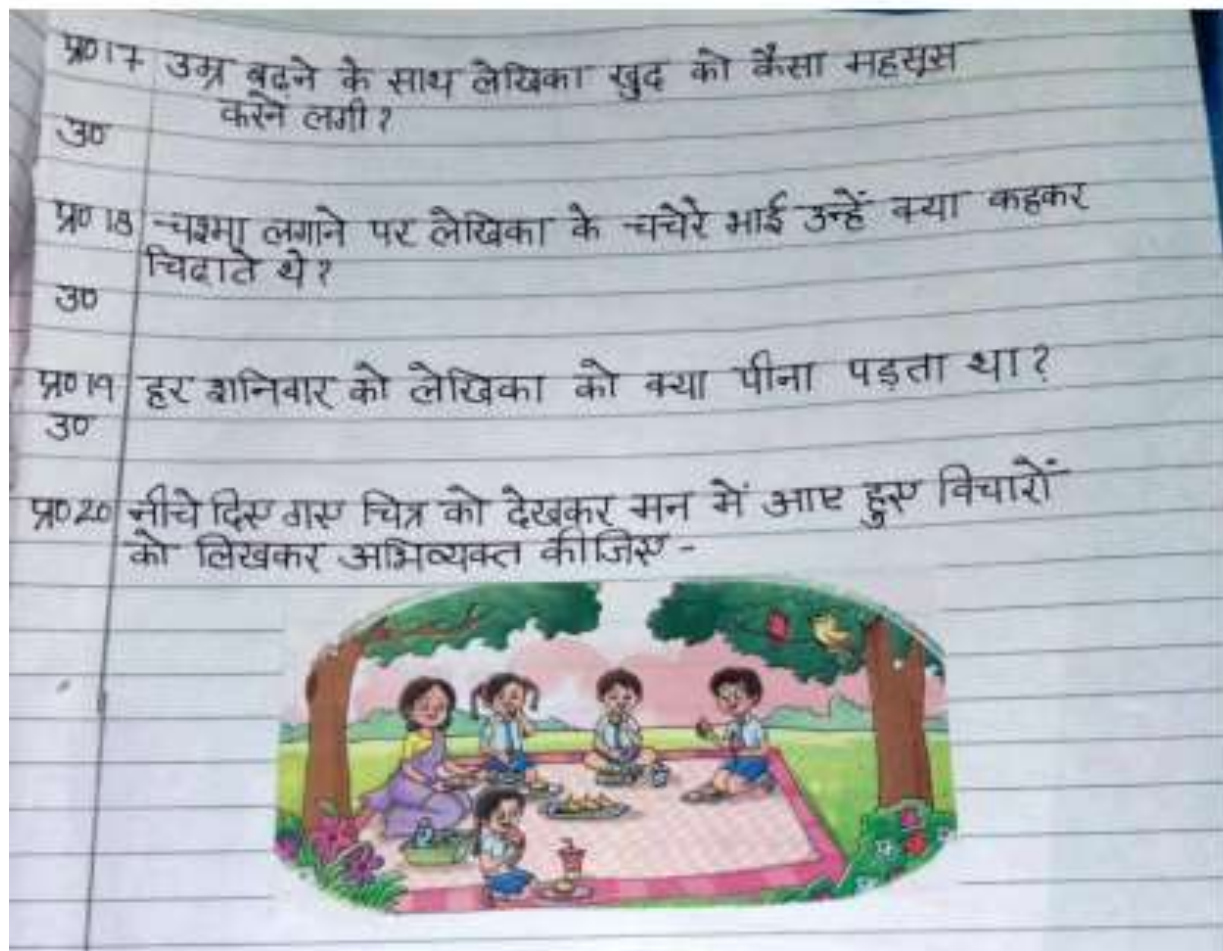 प्र०17 उम्र बढ़ने के साथ लेखिका खुद को कैसा महसूस
करने लगी?
उ०
प्र० 18 चश्मा लगाने पर लेखिका के चचेरे भाई उन्हें क्या कहकर
चिढाते थे?
उ०
प्र०19 हर शनिवार को लेखिका को क्या पीना पड़ता था?
उ०
प्र०20 नीचे दिए गए चित्र को देखकर मन में आए हुए विचारों
को लिखकर अभिव्यक्त कीजिए -